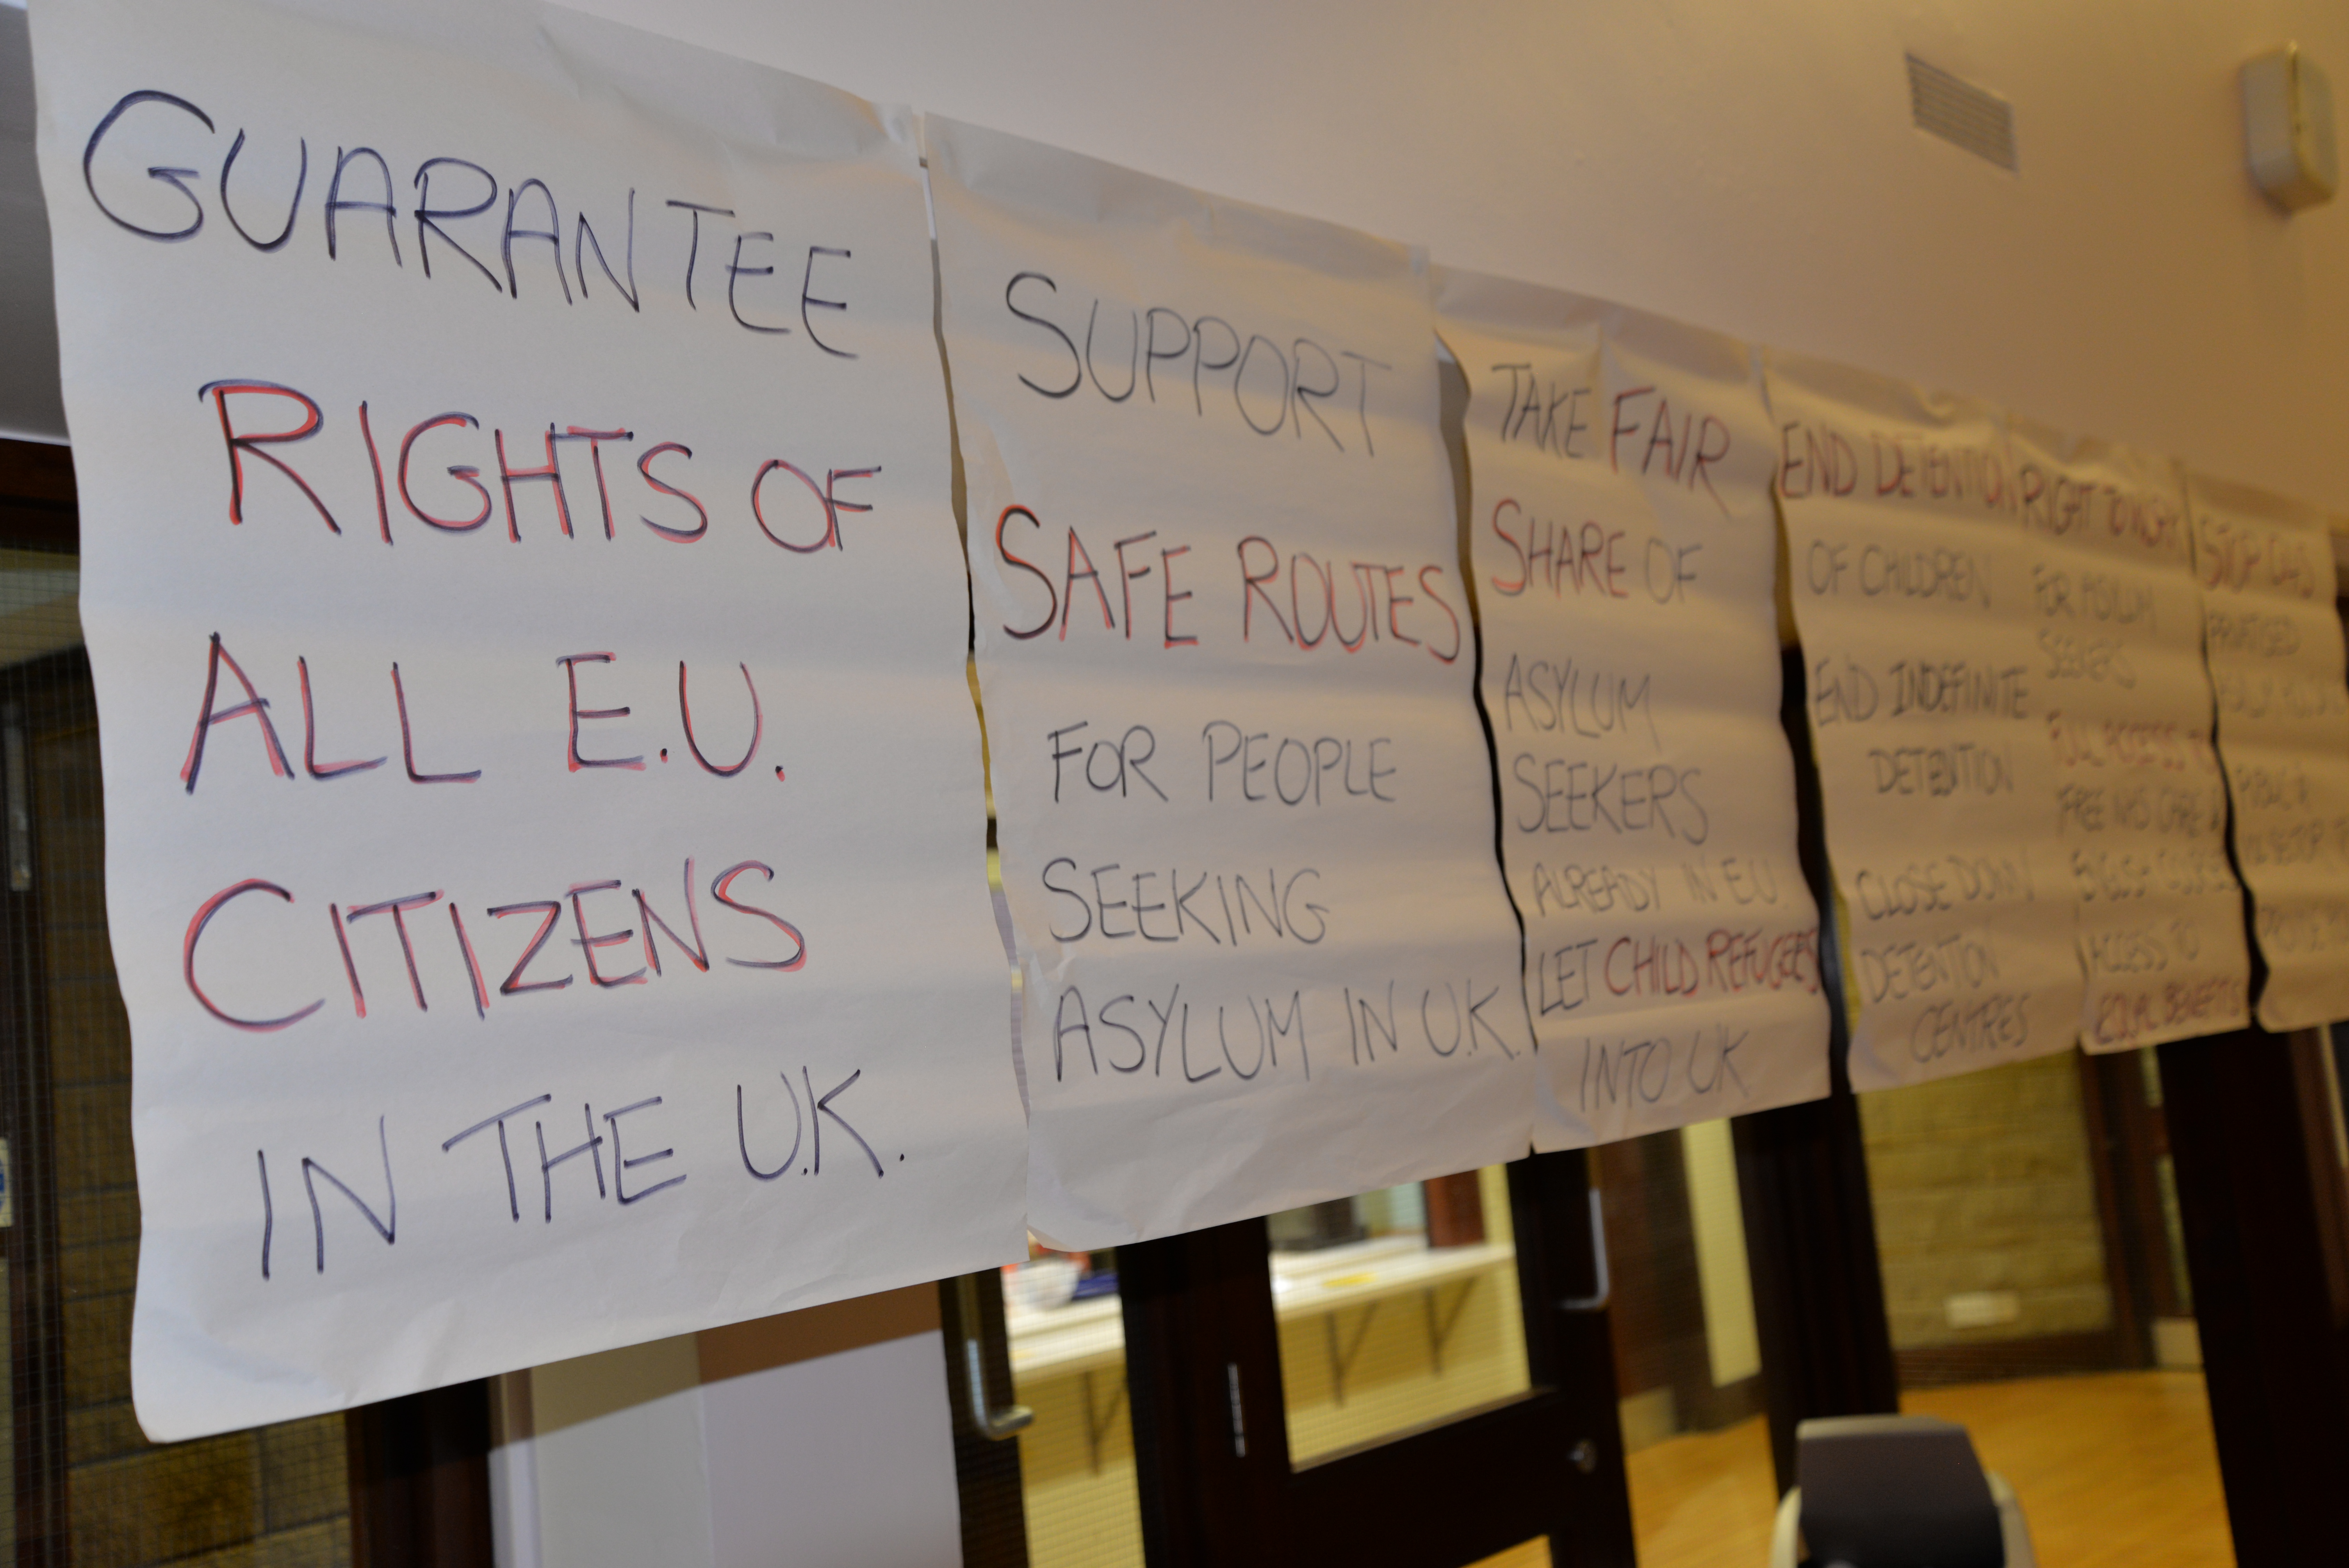 GUARANTEE
RIGHTS OF
ALL E.U.
CITIZENS
IN THE U.K.
SUPPORT
SAFE ROUTES
FOR PEOPLE
SEEKING
ASYLUM IN U.K.
TAKE FAIR
SHARE OF
ASYLUM
SEEKERS
ALREADY IN E.U.
LET CHILD REFUGEES
INTO UK
END DETENTION
OF CHILDREN
END INDEFINITE
DETENTION
CLOSE DOWN
DETENTION
CENTRES
RIGHT TO WORK
FOR ASYLUM
SEEKERS
FULL ACCESS TO
FREE NHS CARE
ENGLISH
ACCESS TO
EQUAL BENEFITS
STOP
PRIVATISED